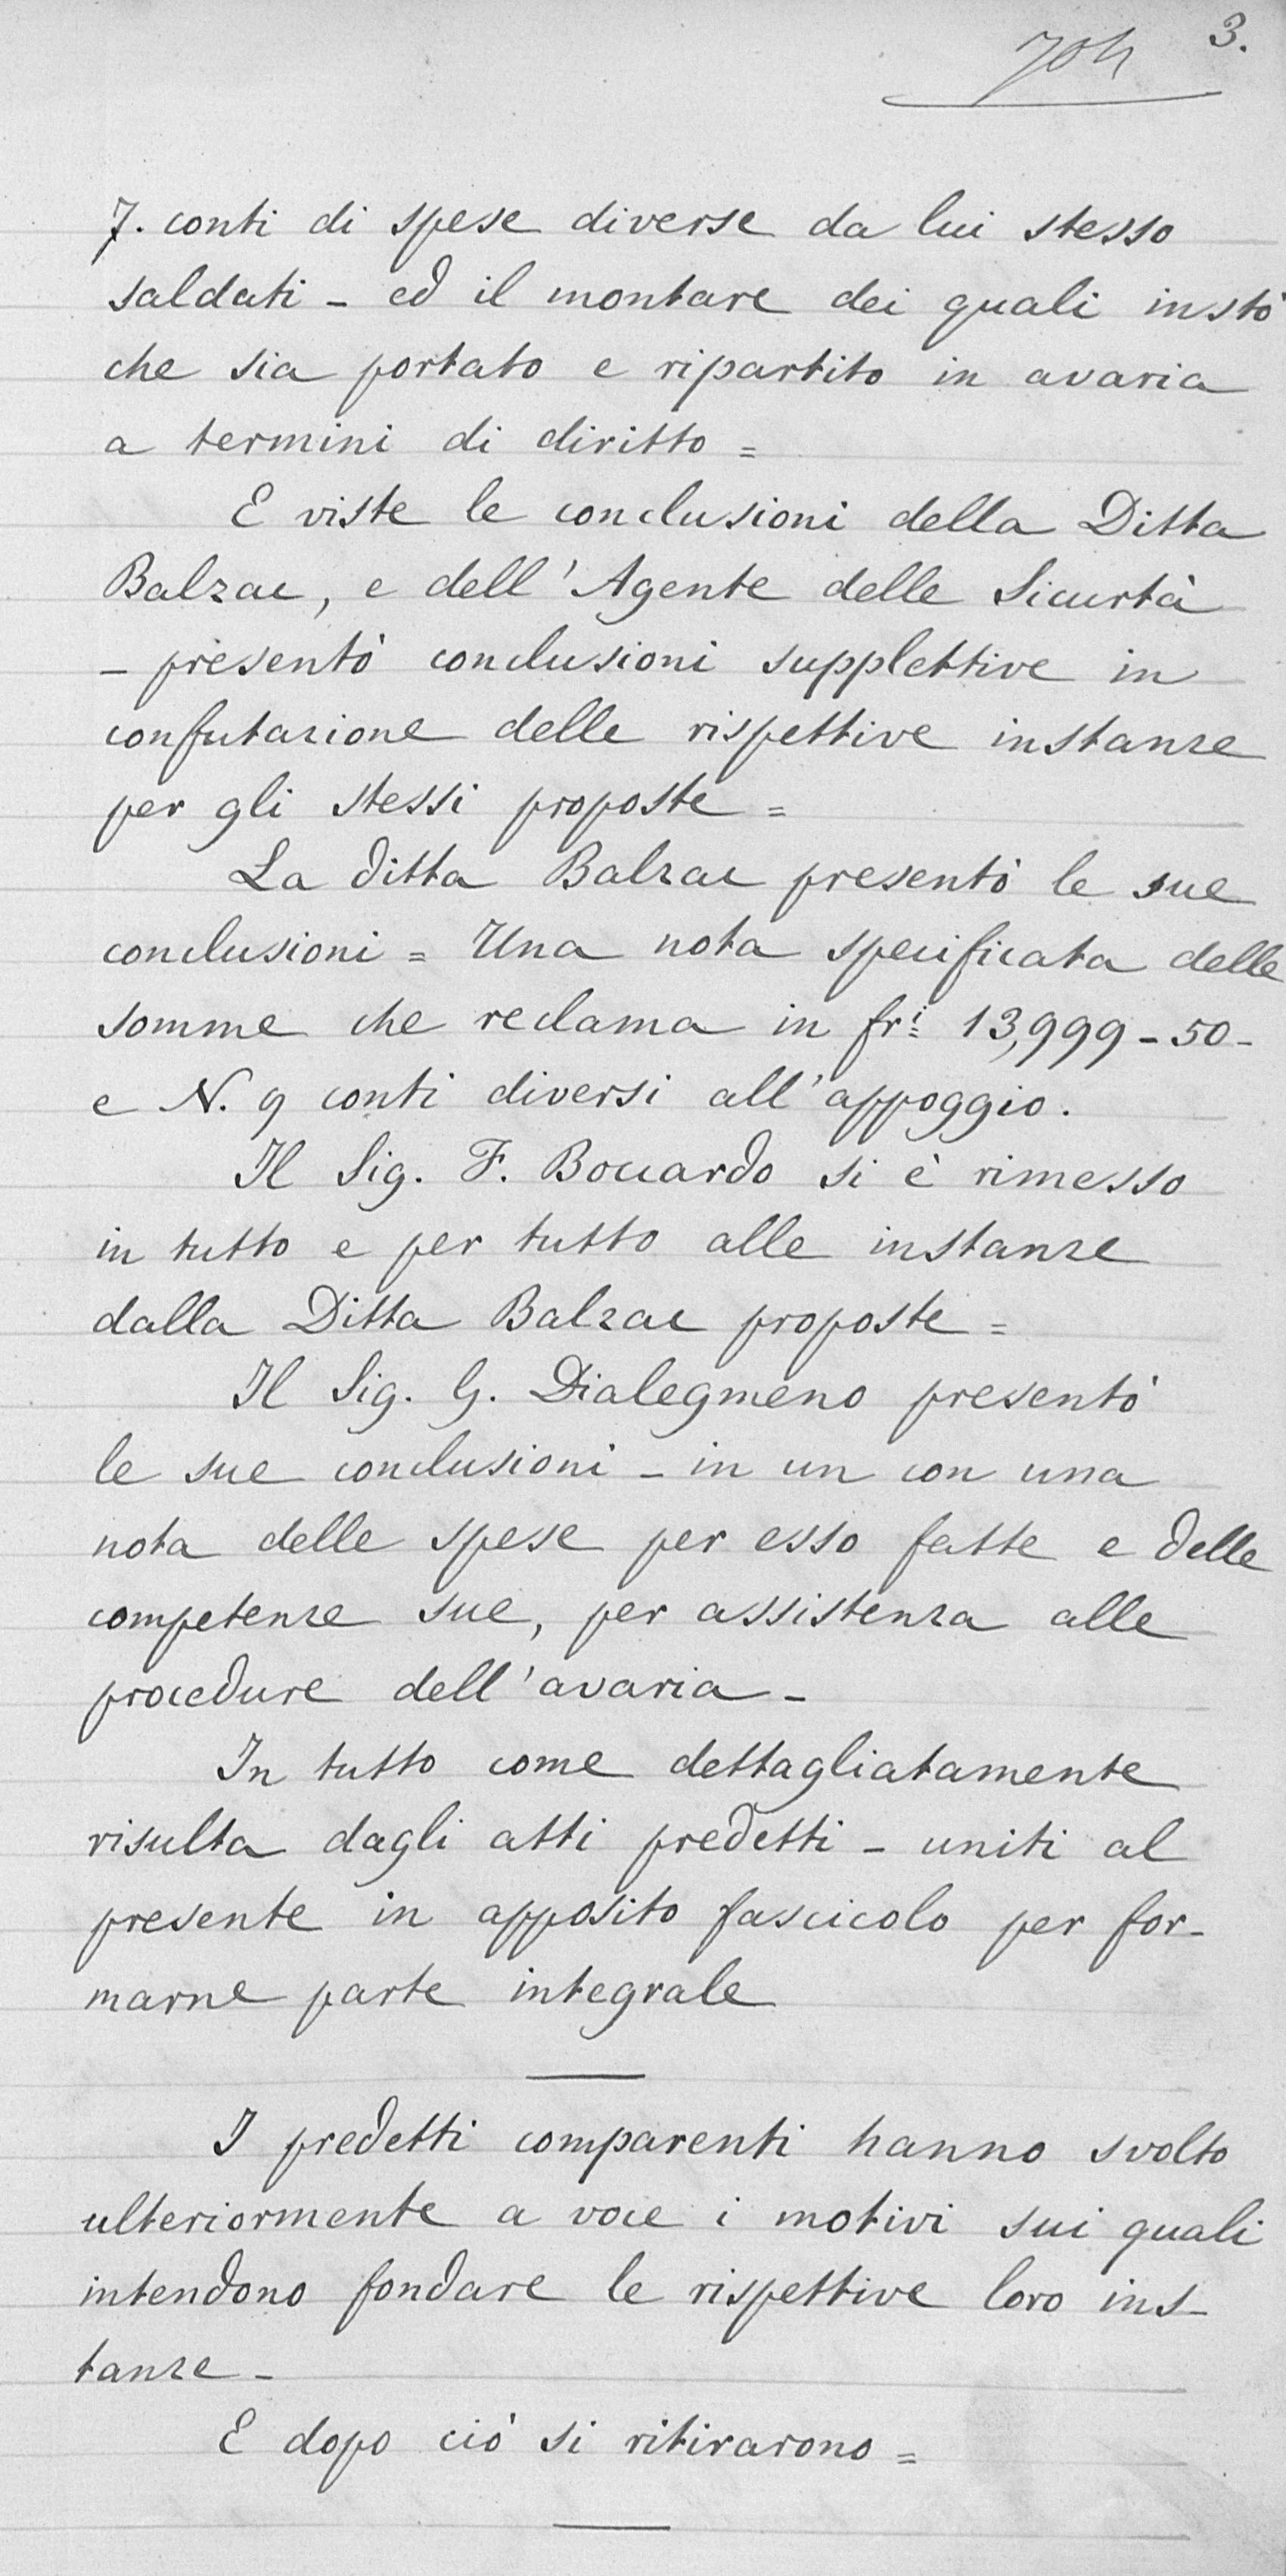 704 3.
7. conti di spese diverse da lui stesso
saldati - ed il montare dei quali instò
che sia portato e ripartito in avaria
a termini di diritto =
E viste le conclusioni della Ditta
Balzac, e dell'Agente delle Sicurtà
- presentò conclusioni supplettive in
confutazione delle rispettive instanze
per gli stessi proposte =
La ditta Balzac presentò le sue
conclusioni = Una nota specificata delle
somme che reclama in fri 13,999 - 50 -
e N. 9 conti diversi all'appoggio.
Il Sig. F. Boccardo si è rimesso
in tutto e per tutto alle instanze
dalla Ditta Balzac proposte =
Il Sig. G. Dialegmeno presentò
le sue conclusioni - in un con una
nota delle spese per esso fatte e delle
competenze sue, per assistenza alle
procedure dell'avaria -
In tutto come dettagliatamente
risulta dagli atti predetti - uniti al
presente in apposito fascicolo per for-
marne parte integrale
I predetti comparenti hanno svolto
ulteriormente a voce i motivi sui quali
intendono fondare le rispettive loro ins-
tanze -
E dopo ciò si ritirarono =